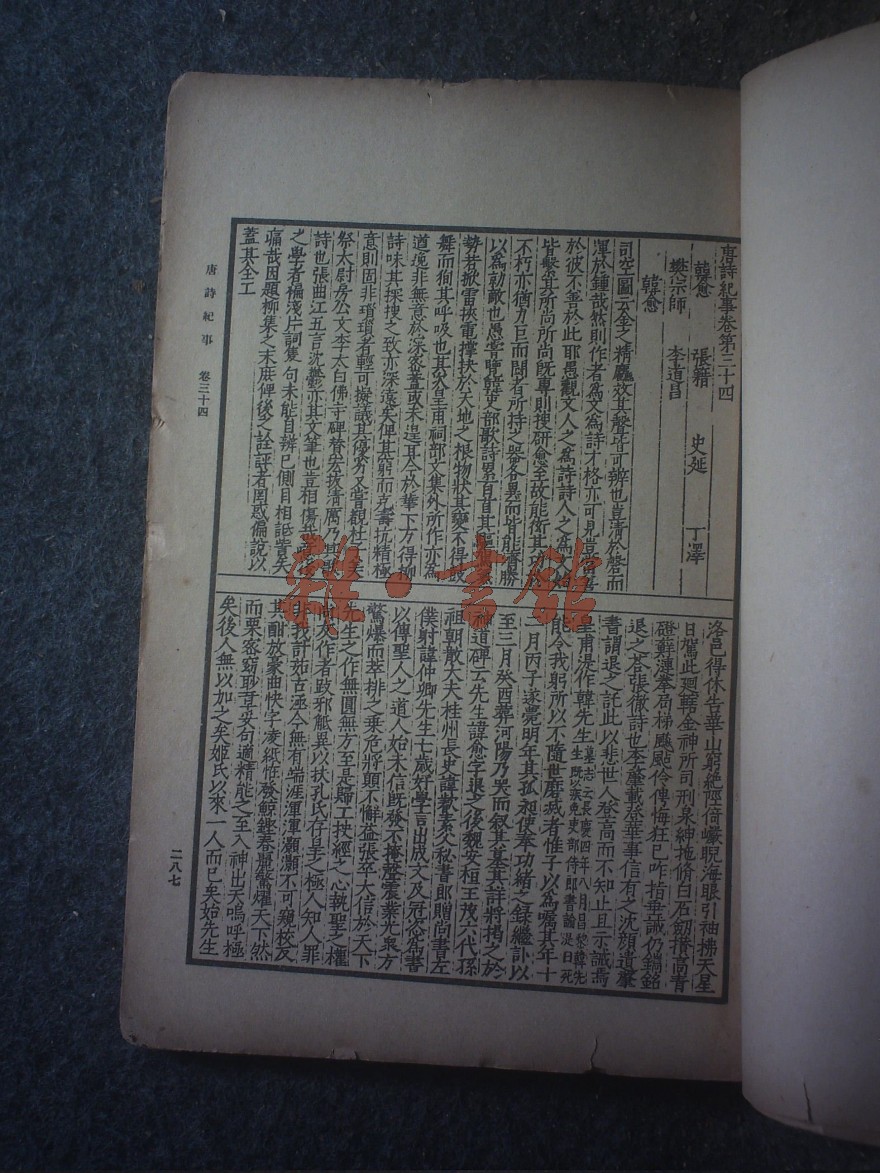 唐詩紀事卷第三十四
韓愈 張籍 史延 丁澤
樊宗師 李道昌
韓愈
司空圖云金之精麤效其聲皆可辨也豈清於磬而
渾於鍾哉然則作者為文為詩才格亦可見豈當善
於彼不善於此耶愚觀文人之為詩詩人之為文始
皆繫其所尚所尚既專則搜研愈至故能衒其功於
不朽亦猶力巨而鬪者所持之器各異而皆能濟勝
以為勍敵也愚嘗覽韓吏部歌詩累百首其驅駕氣
勢若掀雷挾電撐抉於天地之根物狀其變不得鼓
舞而徇其呼吸也其次皇甫祠部文集外所作亦為
道逸非無意於深密蓋或未遑耳今於華下方得柳
詩味其探搜之致亦深遠矣俾其窮而克壽抗精極
意則固非瑣瑣者輕可擬議其優劣又嘗觀杜子美
祭太尉房公文李太白佛寺碑贊宏拔清厲乃其歌
詩也張曲江五言沈鬱亦其文筆也豈相傷哉
之學者褊淺片詞隻句未能自辨已側目相詆訾矣
痛哉因題柳集之末庶俾後之詮評者罔惑偏說以
蓋其全工
洛邑得休告華山窮絶陘倚巖睨海眼引袖拂天星
日駕此迴轄金神所司刑泉紳拖脩白石劒攢高青
磴蘚澾拳跼梯飈颭伶俜悔狂已咋指垂誡仍鐫銘
退之荅張徹詩也李肇載登華事信有之沈顔遺肇
書謂退之託此以非世人登高而不知止且示誡焉
皇甫湜作韓先生墓志云長慶四年八月昌黎韓先
生既以疾免吏部侍郎書諭湜曰死
能令我躬所以不隨世磨滅者惟子以為囑其年十
二月丙子遂薨明年其孤昶使奉功緒之録繼訃以
至三月癸酉葬河陽乃哭而敘其墓其詳將揭之於
神道碑云先生諱愈字退之後魏安桓王茂六代孫
祖朝散大夫桂州長史諱叡素父秘書郎贈尚書左
僕射諱仲卿先生七歲好學言出成文及冠恣為書
以傳聖人之道人始未信既發不掩聲震業光衆方
驚爆而萃排之乘危將顛不懈益張卒大信於天下
先生之作無圓無方至是歸工抉經之心執聖之權
尚友作者跂邪觝異以扶孔氏存皇之極人知人罪
非我計茹古涵今無有端涯渾渾灝灝不可窺校及
其酣放豪曲快字凌紙怪發鯨鏗春麗驚耀天下然
而栗密窈眇章妥句適精能之至入神出天嗚呼極
矣後人無以加之矣姬氏以來一人而已矣始先生
唐詩紀事 卷三十四
二八七
雜·書館